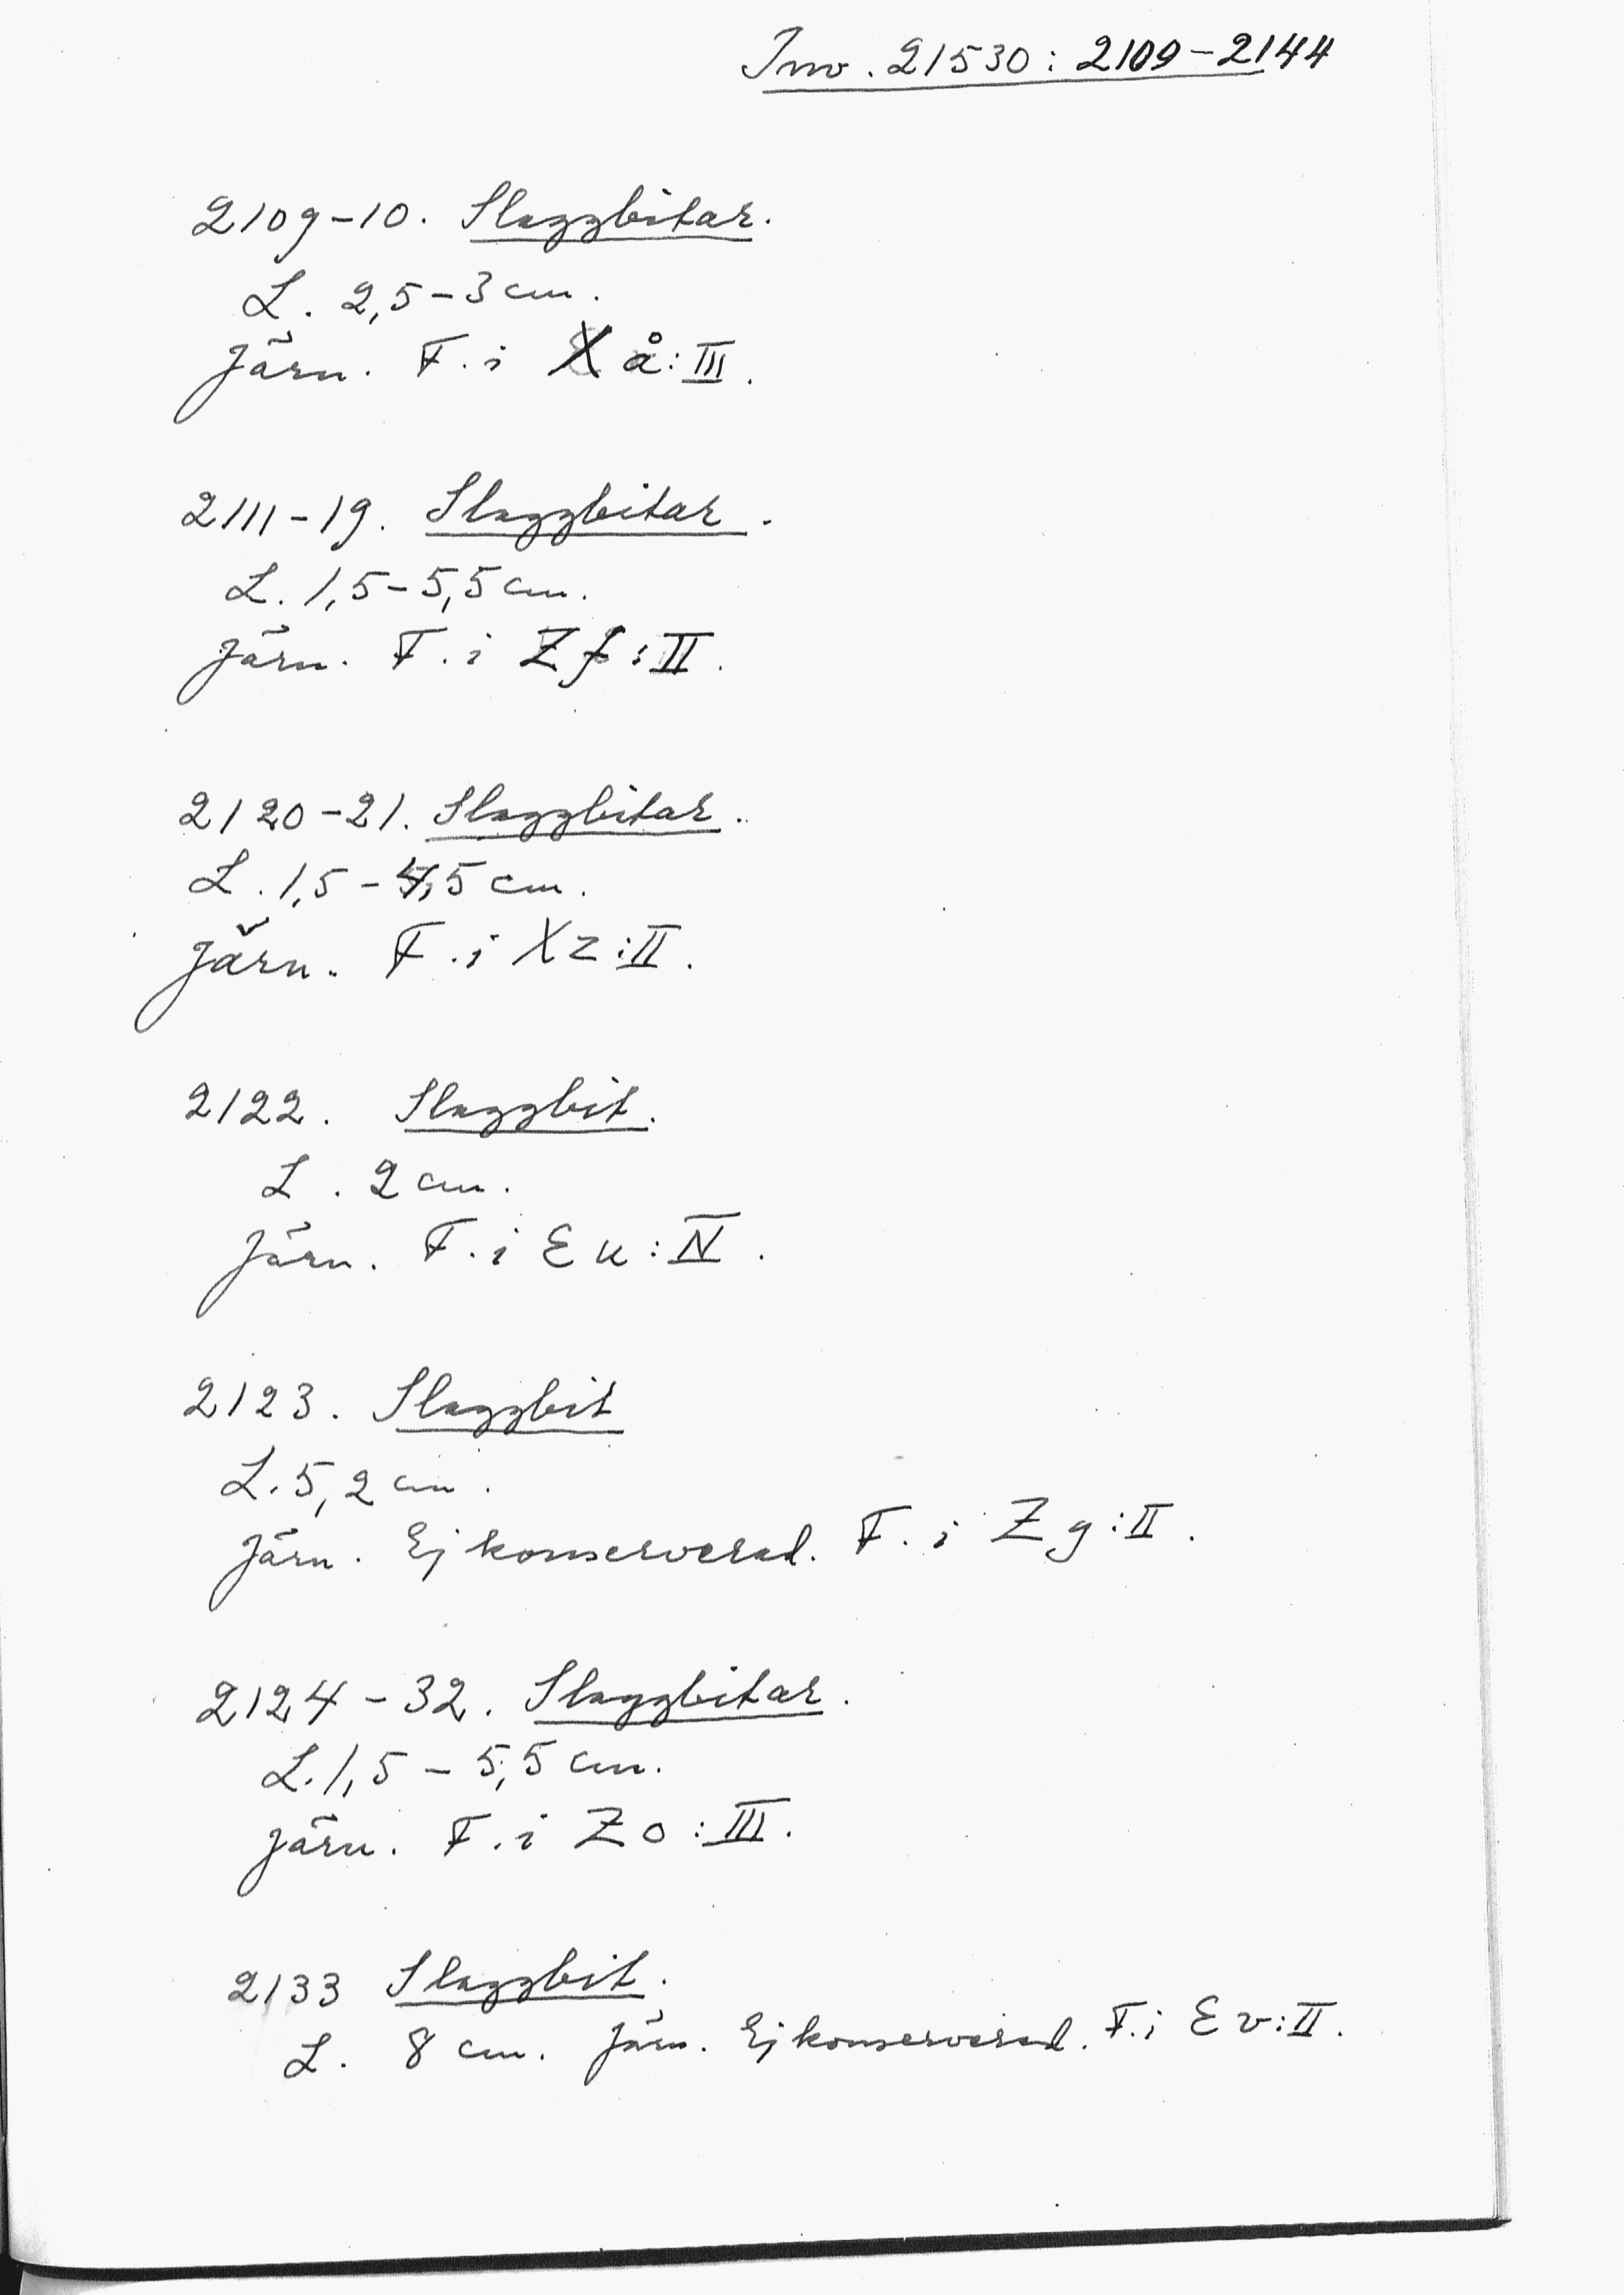 Inv. 21530: 2109-2144
2109-10. Slaggbitar.
L. 2,5-3 cm.
Järn. F. i Xå:III.
2111-19. Slaggbitar.
L. 1,5-5,5 cm.
Järn. F. i Zf:II.
2120-21. Slaggbitar.
L. 1,5-4,5 cm.
Järn. F. i Xz:II.
2122. Slaggbit.
L. 2 cm.
Järn. F. i Eu:IV.
2123. Slaggbit
L. 5,2 cm.
Järn. Ej konserverad. F. i Zg:II.
2124-32. Slaggbitar.
L. 1,5-5,5 cm.
Järn. F. i Zo:III.
2133 Slaggbit.
L. 8 cm. Järn. Ej konserverad. F. i Ev:II.